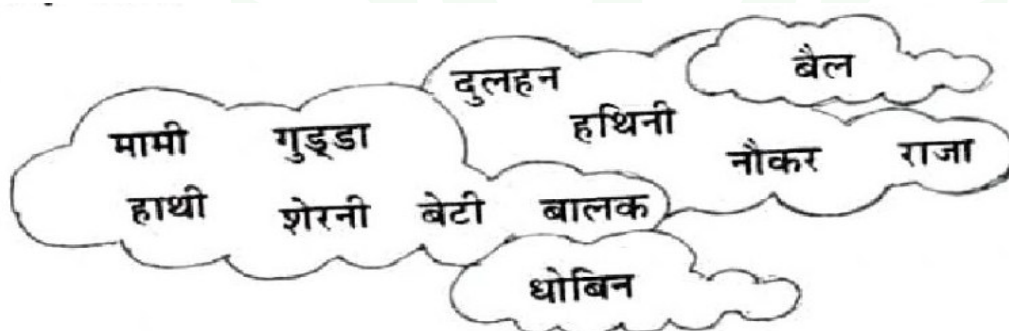 दुलहन बैल
हथिनी
मामी गुड्डा नौकर राजा
हाथी शेरनी बेटी बालक
धोबिन